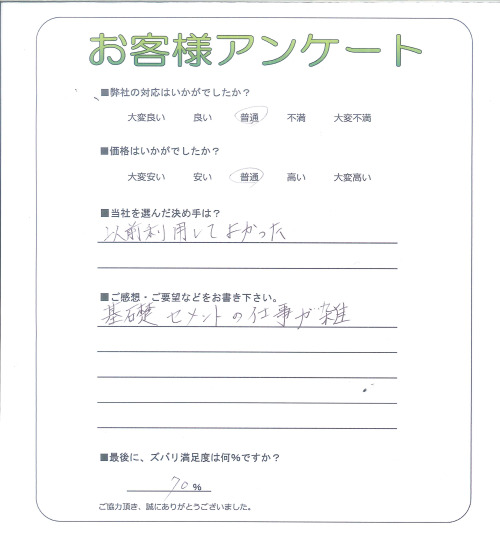 お客様アンケート
■弊社の対応はいかがでしたか？
大変良い 良い 普通 不満 大変不満
■価格はいかがでしたか？
大変安い 安い 普通 高い 大変高い
■当社を選んだ決め手は？
以前利用してよかった
■ご感想・ご要望などをお書き下さい。
基礎セメントの仕事が雑
■最後に、ズバリ満足度は何%ですか？
70%
ご協力頂き、誠にありがとうございました。